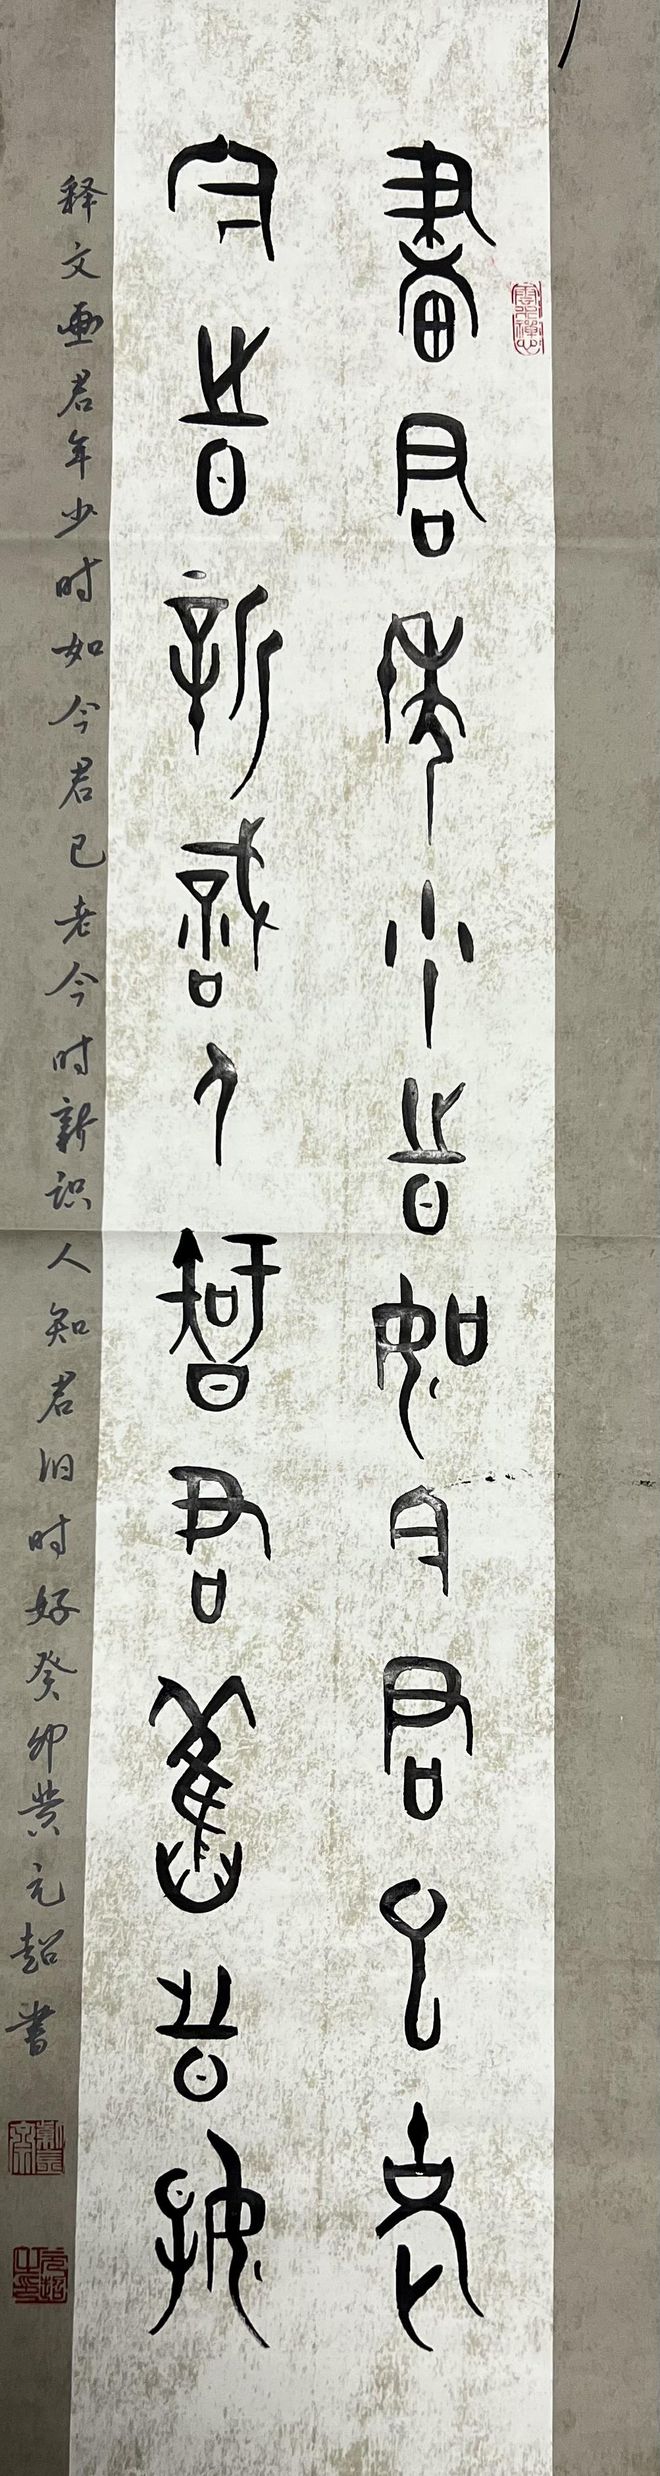 畫君年少時如今君已老
今時新識人知君舊時好
释文画君年少时如今君已老今时新识人知君旧时好癸卯黄元超书
元超之印